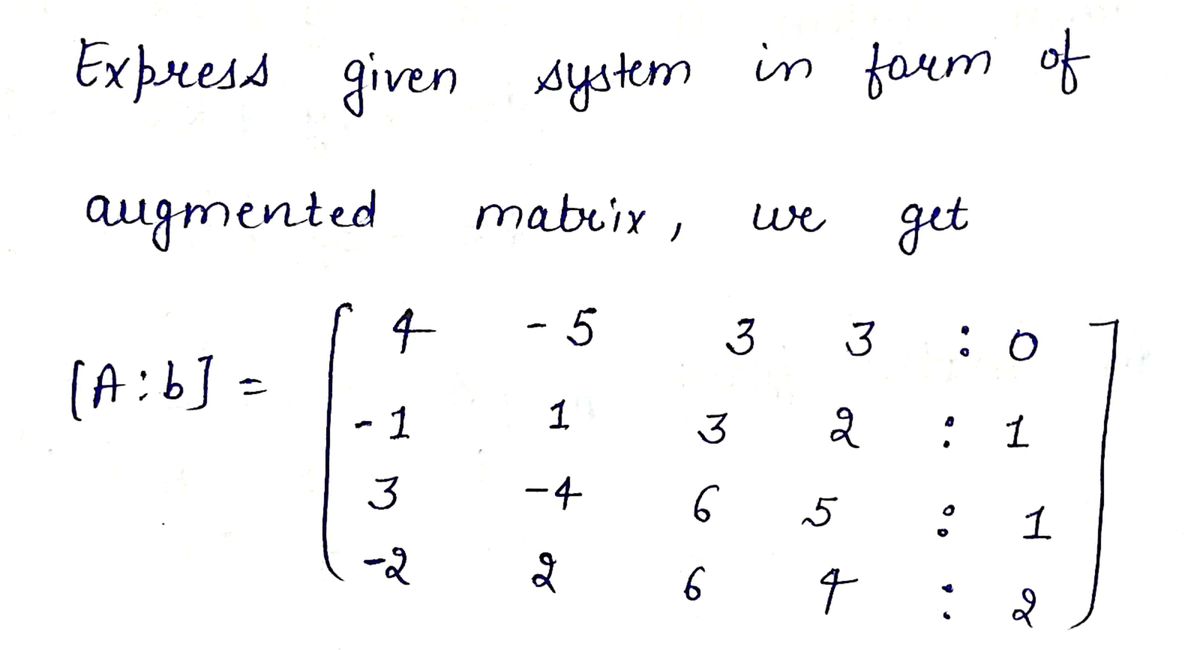 Express given system in form of
augmented matrix, we get
[A:b] = [ 4 -5 3 3 : 0 ]
-1 1 3 2 : 1
3 -4 6 5 : 1
-2 2 6 4 : 2